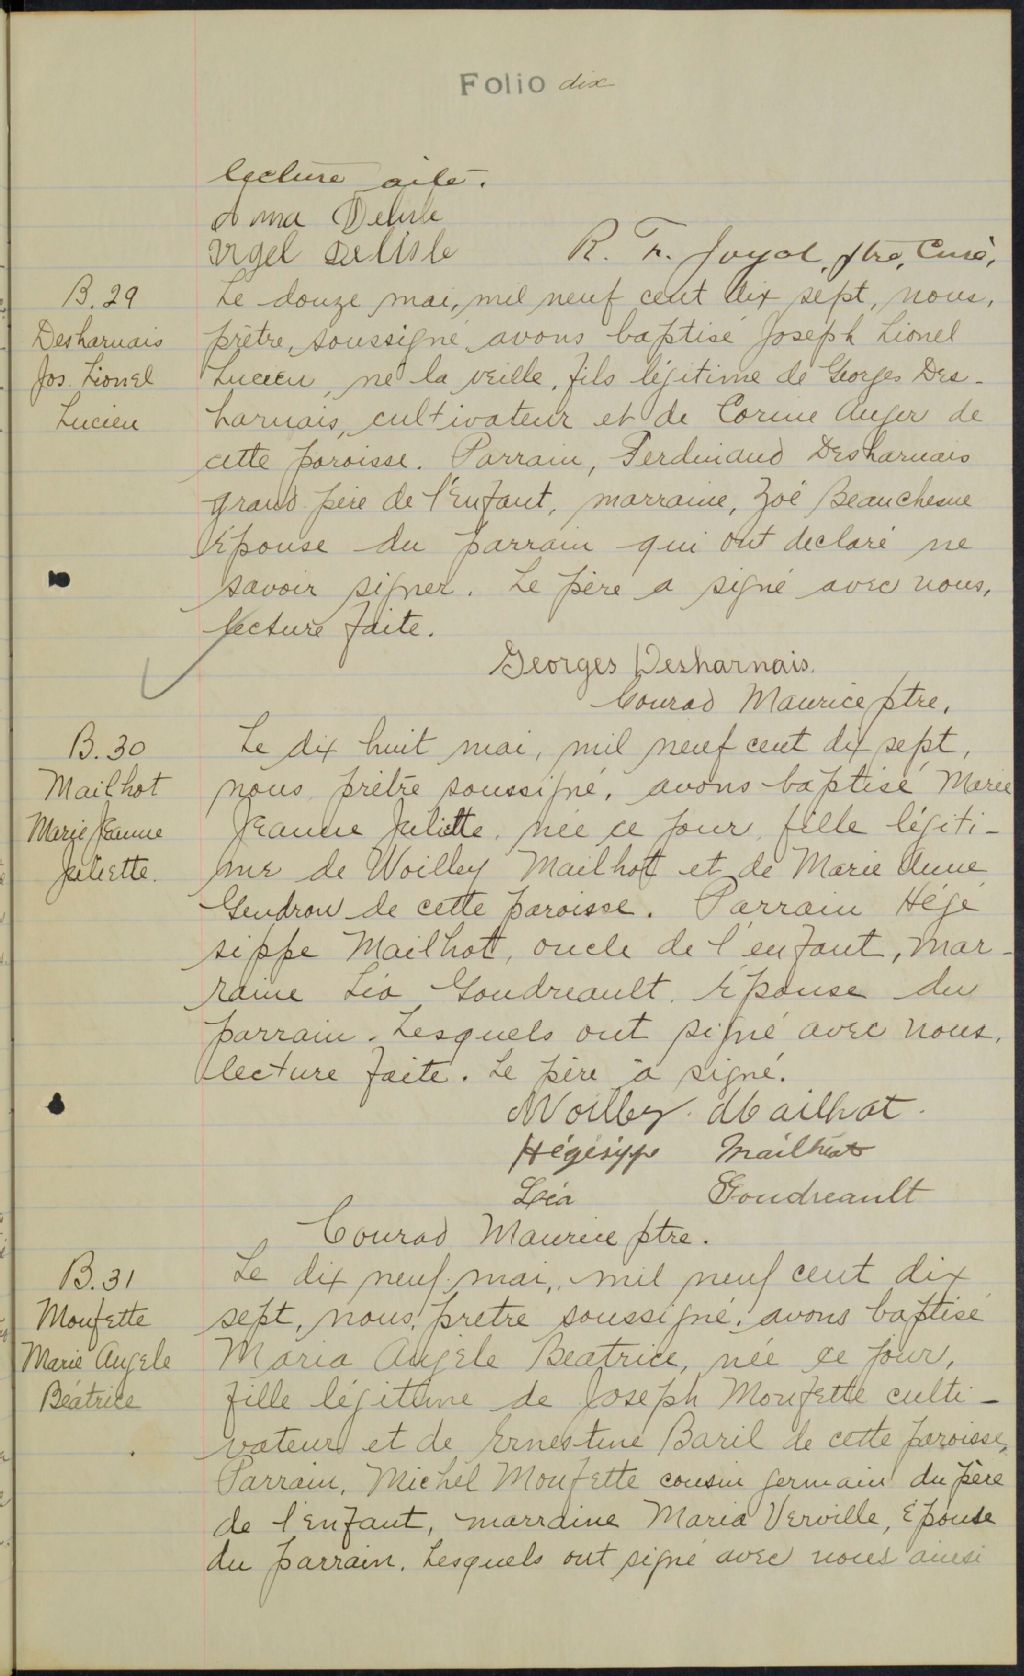 Folio dix
lecture aite.
Delisle
Vrgel Delisle R. Fr. Joyal, ptre, Curé,
B. 29
Desharnais
Jos. Lionel
Lucien
Le douze mai, mil neuf cent dix sept, nous,
prêtre, soussigné, avons baptisé Joseph Lionel
Lucien, né la veille, fils légitime de Georges Des-
harnais, cultivateur et de Corine Auger de
cette paroisse. Parrain, Ferdinand Desharnais
grand père de l'Enfant, marraine, Zoé Beauchesne
Epouse du parrain qui ont declaré ne
savoir signer. Le père a signé avec nous,
lecture faite.
Georges Desharnais.
Conrad Maurice ptre,
B. 30
Mailhot
Marie Jeanne
Juliette.
Le dix huit mai, mil neuf cent dix sept,
nous prêtre soussigné, avons baptisé Marie
Jeanne Juliette, née ce jour, fille légiti-
me de Woilley Mailhot et de Marie Anne
Gendron de cette paroisse. Parrain Hégé
sippe Mailhot, oncle de l'enfant, mar-
raine Léa Goudreault, Epouse du
parrain. Lesquels ont signé avec nous,
lecture faite. Le père a signé.
Woilley Mailhot.
Hégésippe Mailhot
Léa Goudreault
Conrad Maurice ptre.
B. 31
Moufette
Marie Angele
Béatrice
Le dix neuf mai, mil neuf cent dix
sept, nous, prêtre soussigné, avons baptisé
Maria Angèle Beatrice, née ce jour,
fille légitime de Joseph Moufette culti-
vateur et de Ernestine Baril de cette paroisse,
Parrain, Michel Moufette cousin germain du père
de l'Enfant, marraine Maria Verville, Epouse
du parrain. Lesquels ont signé avec nous ainsi